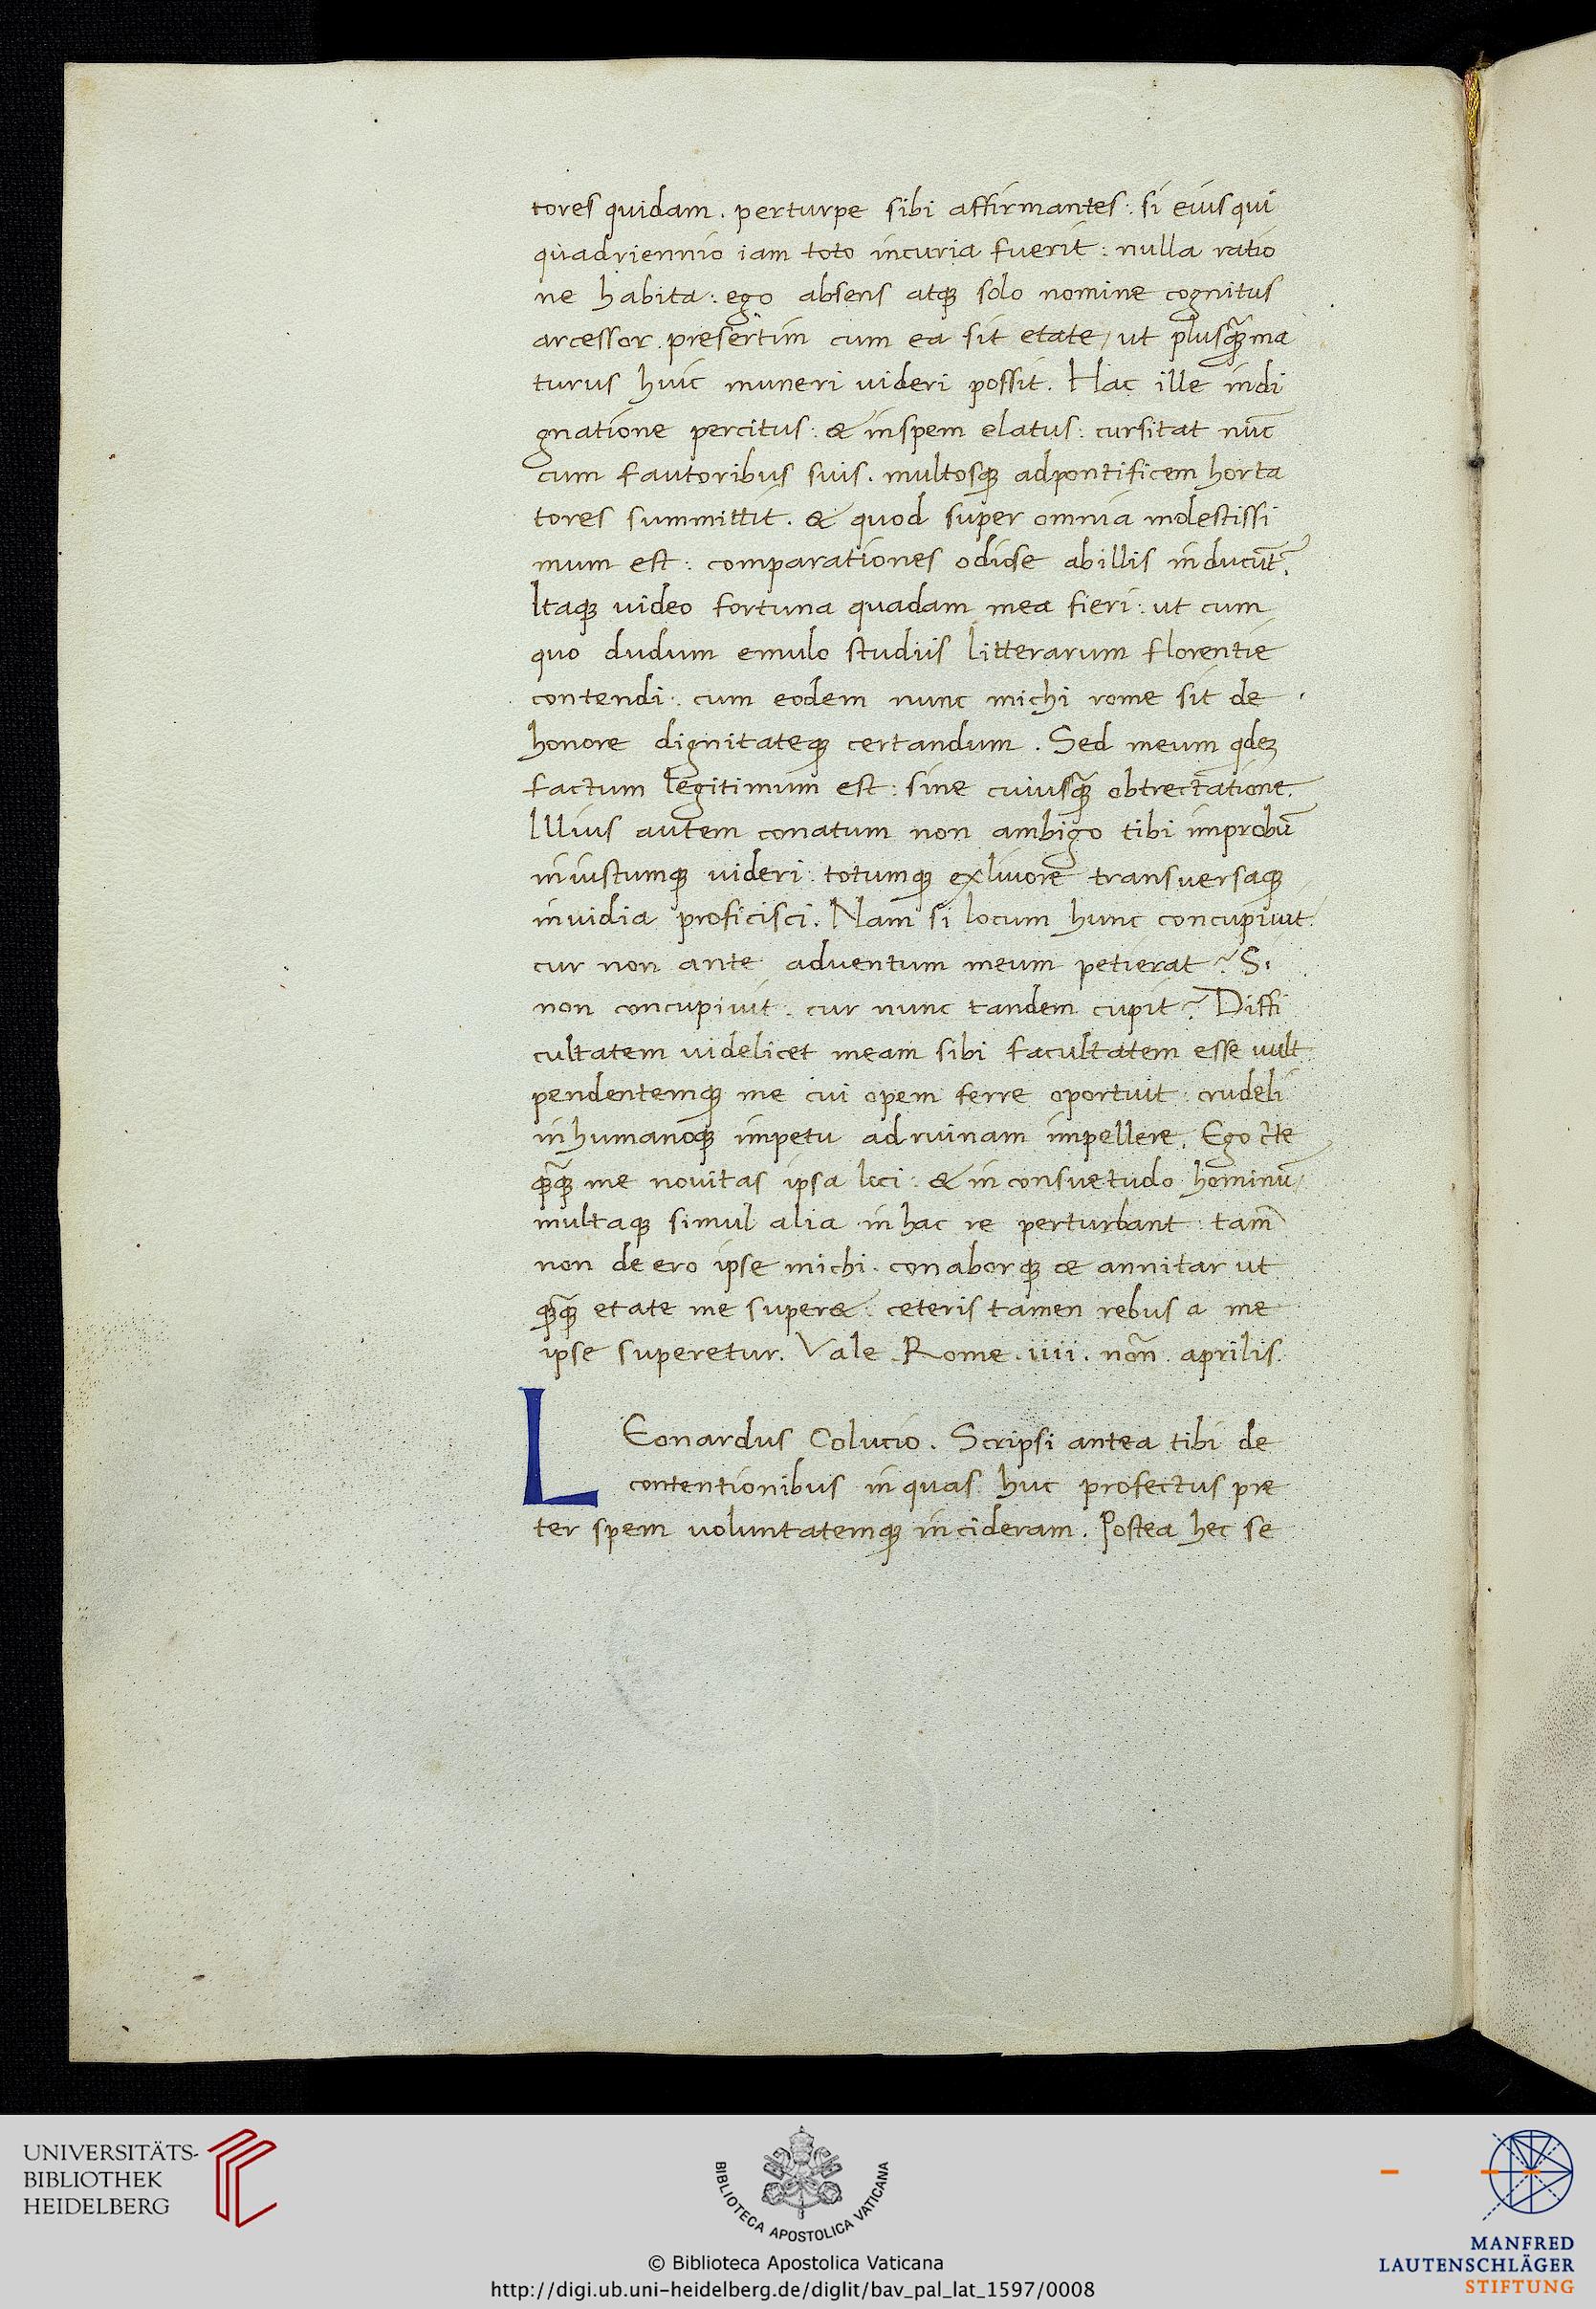 tores quidam. perturpe sibi affirmantes: si eius qui
quadriennio iam toto incuria fuerit: nulla ratio
ne habita: ego absens atqꝫ solo nomine cognitus
arcessor. presertim cum ea sit etate/ ut plusqꝫ̃ ma
turus huic muneri uideri possit. Hac ille indi
gnatione percitus: & inspem elatus: cursitat nũc
cum fautoribus suis. multosqꝫ adpontificem horta
tores summittit. & quod super omnia molestissi
mum est: comparationes odiose abillis inducũt᷑.
Itaqꝫ video fortuna quadam mea fieri: ut cum
quo dudum emulo studiis litterarum florentie
contendi: cum eodem nunc michi rome sit de
honore dignitateqꝫ certandum. Sed meum qdeꝫ
factum legitimum est: sine cuiusqꝫ̃ obtrectatione.
Illius autem conatum non ambigo tibi improbũ
iniustumqꝫ uideri: totumqꝫ exliuore transuersaqꝫ
inuidia proficisci. Nam si locum hunc concupiuit.
cur non ante adventum meum petierat? Si
non concupiuit. cur nunc tandem cupit? Diffi
cultatem uidelicet meam sibi facultatem esse uult
pendentemqꝫ me cui opem ferre oportuit: crudeli
inhumanoqꝫ impetu adruinam impellere. Ego c̃te
qꝫ̃qꝫ me nouitas ipsa loci: & inconsuetudo hominũ/
multaqꝫ simul alia in hac re perturbant: tam̃
non de ero ipse michi. conaborqꝫ ac annitar ut
qꝫ̃qꝫ̃ etate me super&: ceteris tamen rebus a me
ipse superetur. Vale. Rome. iiii. noñ. aprilis.
LEonardus Colucio. Scripsi antea tibi de
contentionibus in quas huc profectus pre
ter spem uoluntatemqꝫ incideram. Postea hec se
UNIVERSITÄTS-
BIBLIOTHEK
HEIDELBERG
BIBLIOTECA APOSTOLICA VATICANA
© Biblioteca Apostolica Vaticana
http://digi.ub.uni-heidelberg.de/diglit/bav_pal_lat_1597/0008
MANFRED
LAUTENSCHLÄGER
STIFTUNG